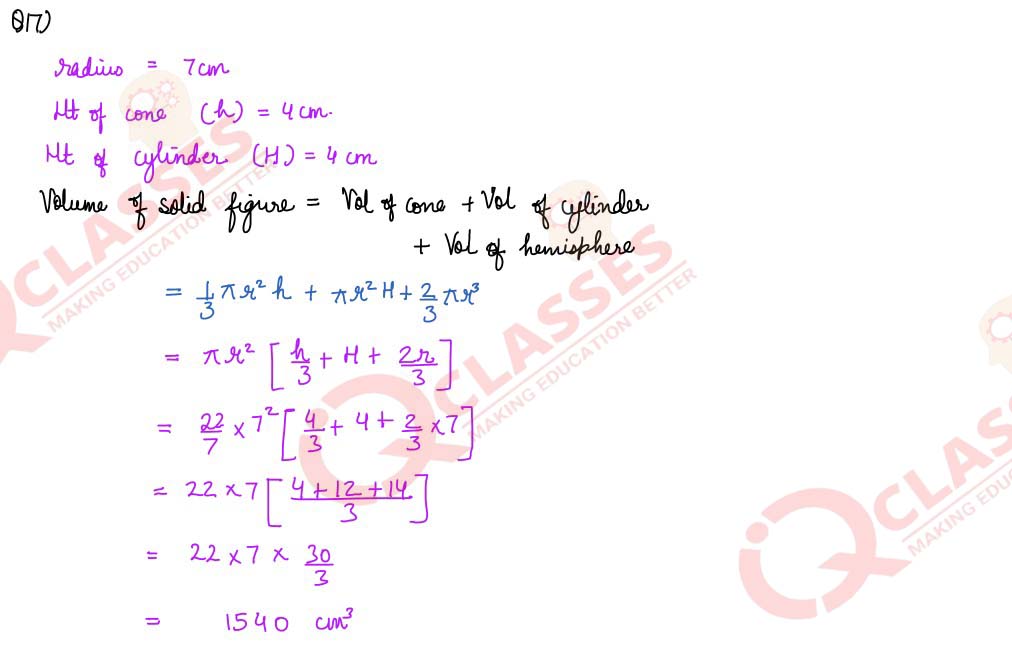 Q17)
radius = 7cm
Ht of cone (h) = 4 cm.
Ht of cylinder (H) = 4 cm
Volume of solid figure = Vol of cone + Vol of cylinder
+ Vol of hemisphere
= 1/3 πr² h + πr² H + 2/3 πr³
= πr² [h/3 + H + 2r/3]
= 22/7 × 7² [4/3 + 4 + 2/3 × 7]
= 22 × 7 [(4 + 12 + 14)/3]
= 22 × 7 × 30/3
= 1540 cm³
CLASSES
MAKING EDUCATION BETTER
CLASSES
MAKING EDUCATION BETTER
CLASSES
MAKING EDUC